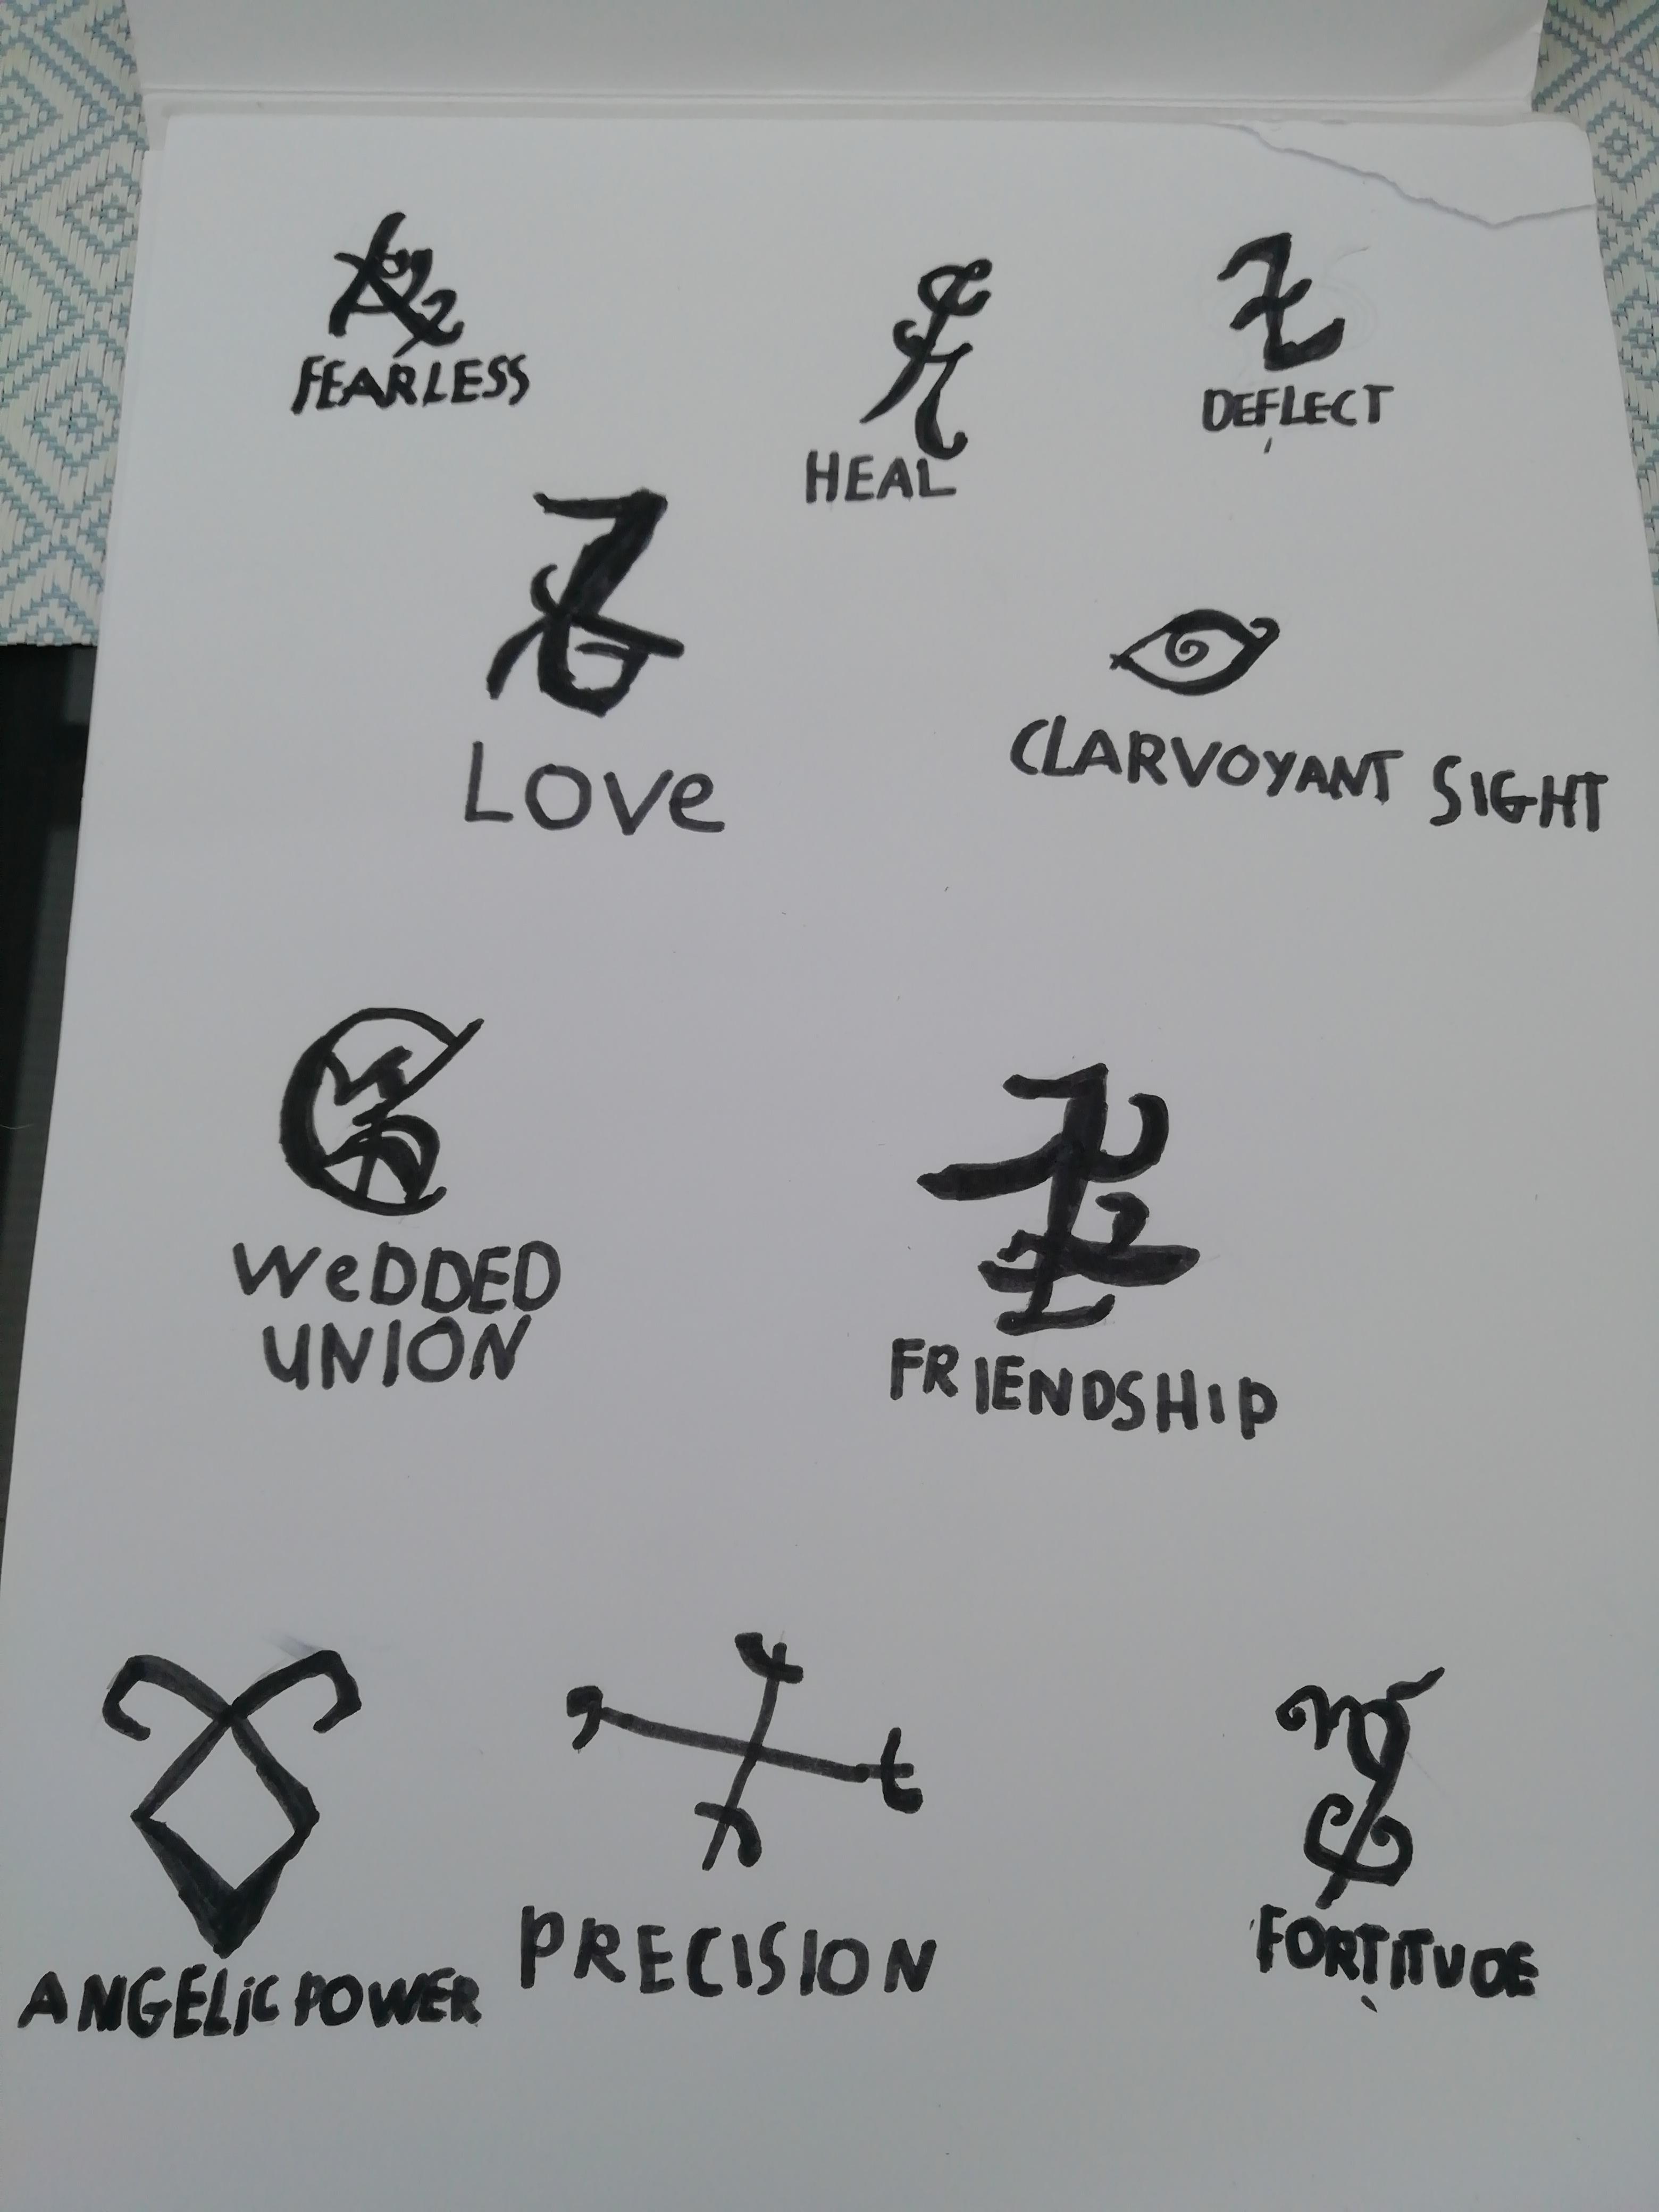 FEARLESS
HEAL
DEFLECT
LOVe
CLARVOYANT SIGHT
WeDDED
UNION
FRIENDSHIP
ANGELiC POWER
PRECISION
FORTITUDE